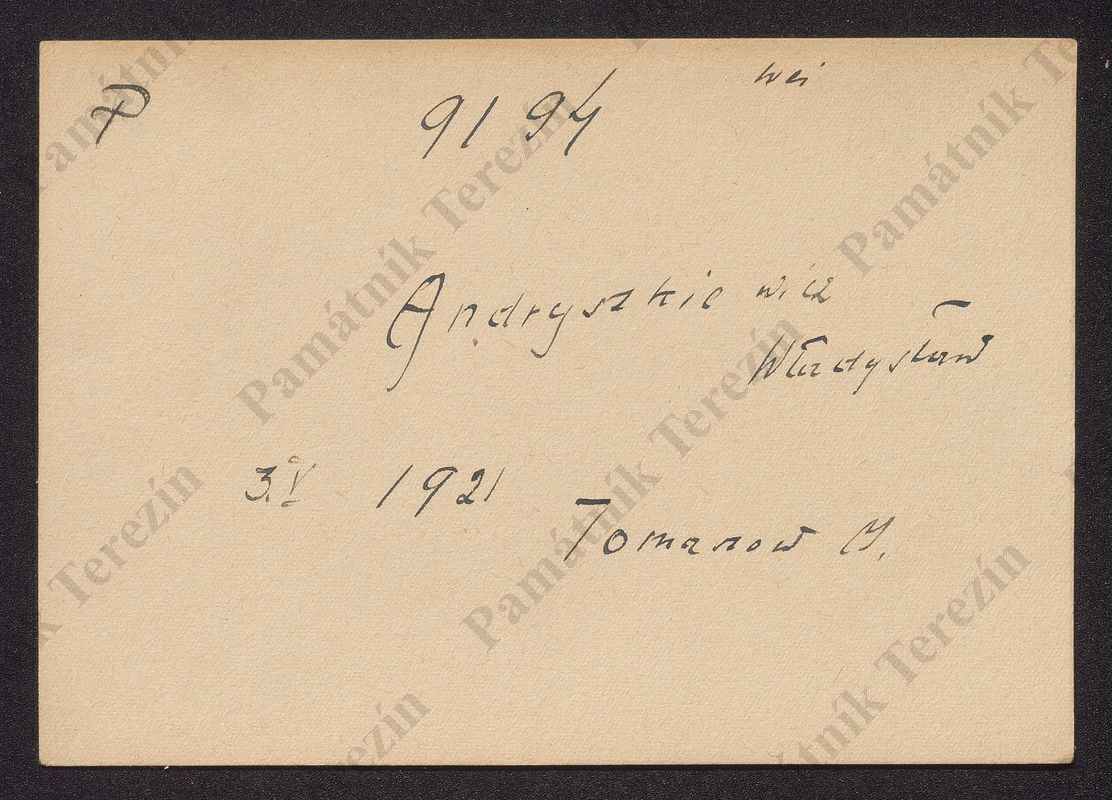 P
9194
wei
Andryszkiewicz
Władysław
3.V 1921
Tomaszow M.
Památník Terezín
Památník Terezín
Památník Terezín
Památník Terezín
Památník Terezín